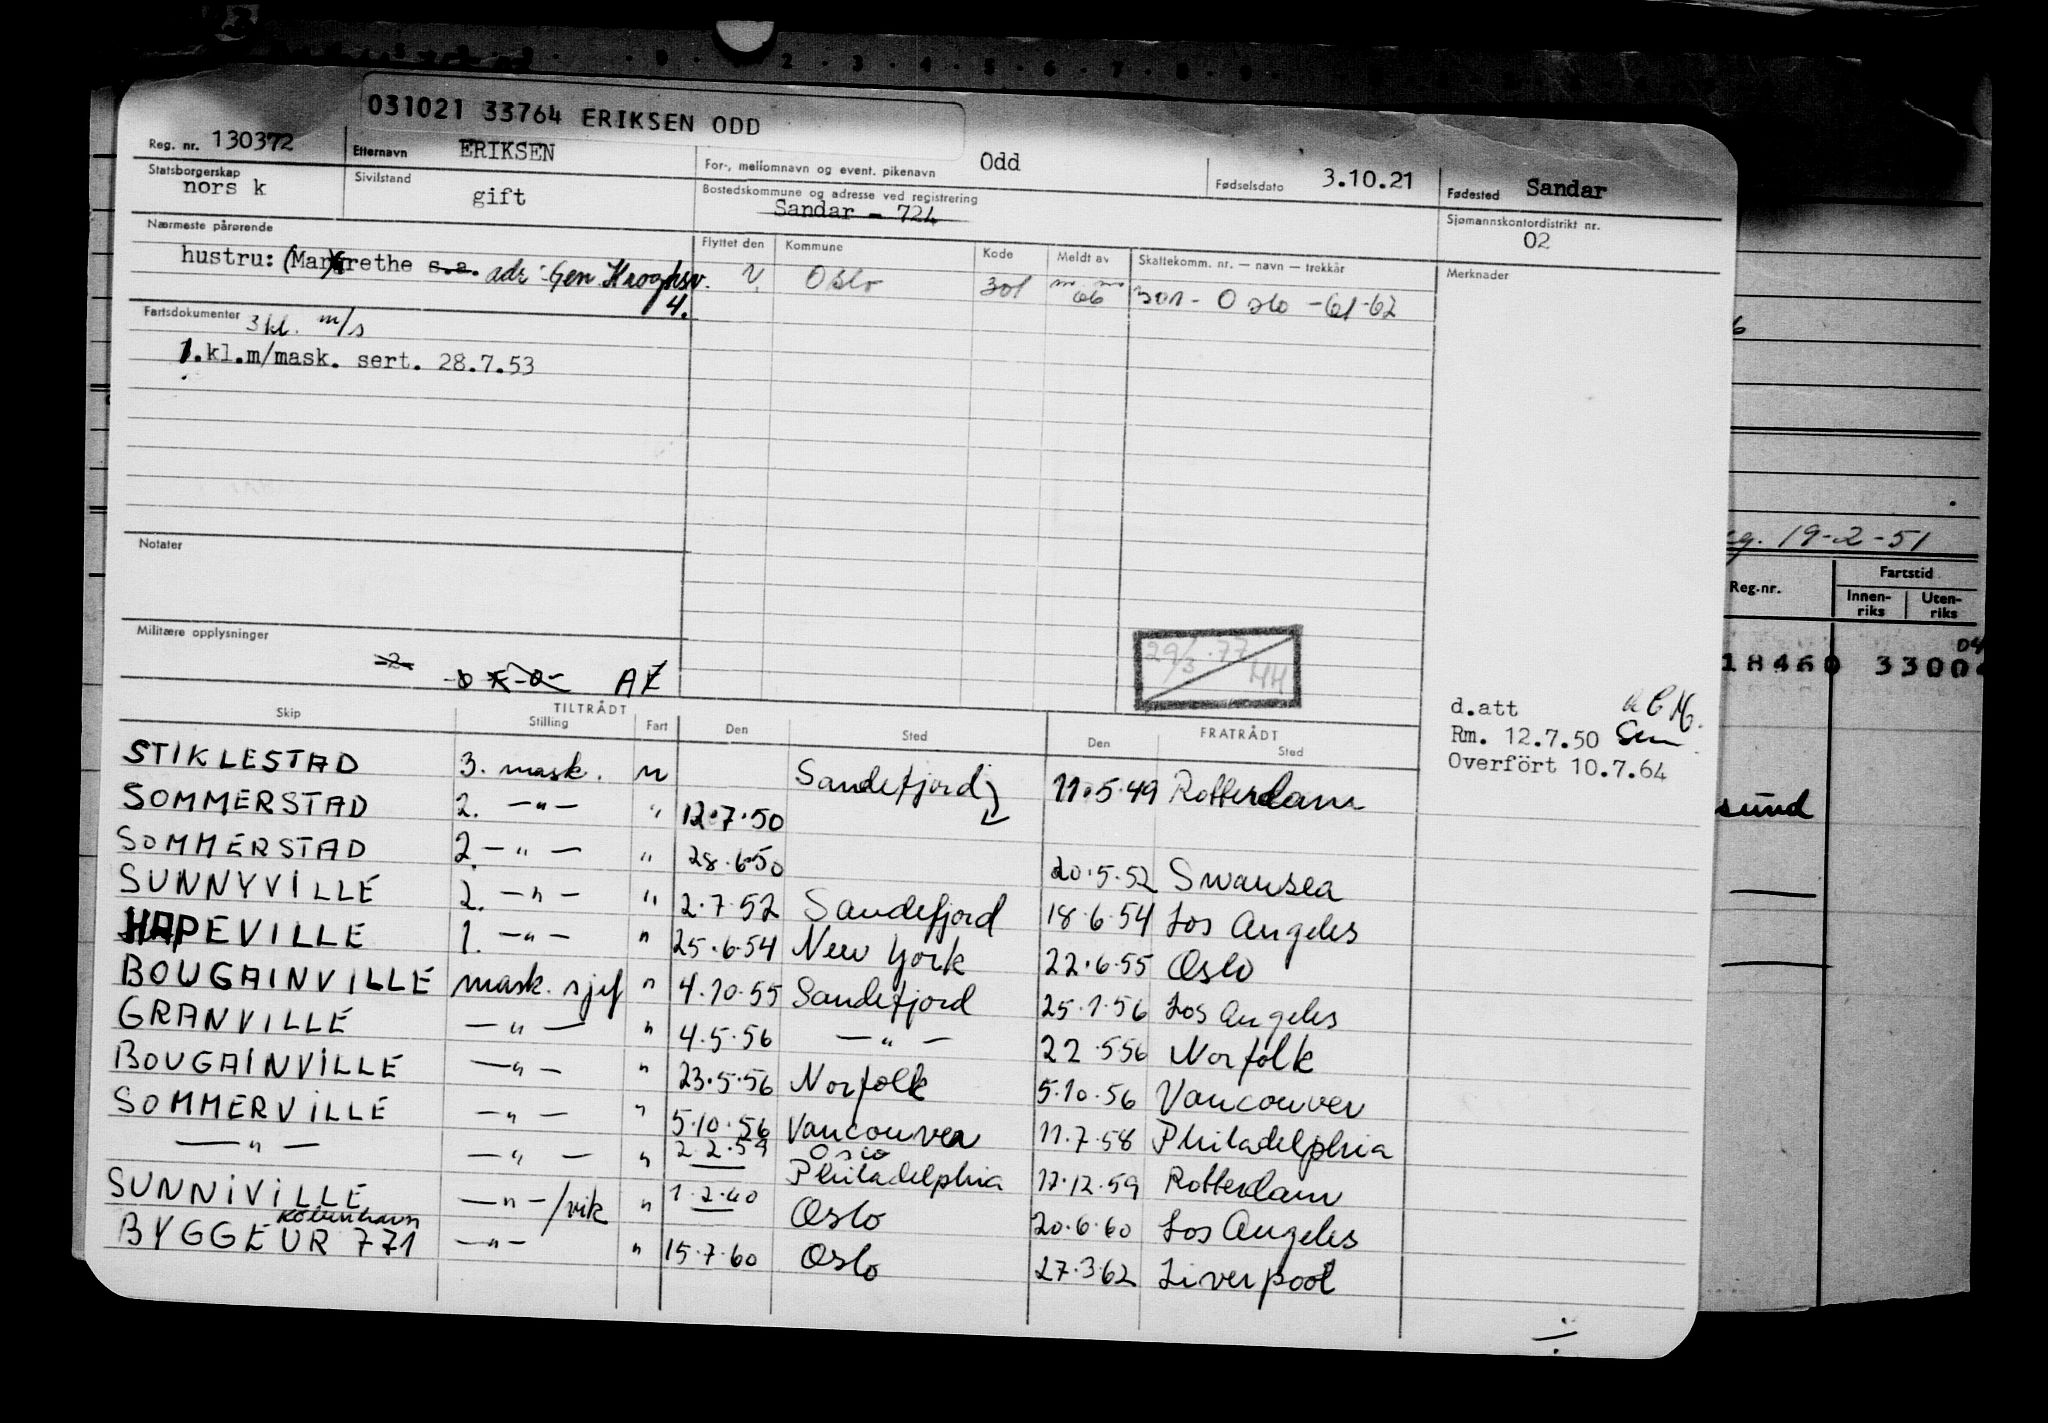 031021 33764 ERIKSEN ODD
Reg. nr. 130372 Etternavn ERIKSEN For-, mellomnavn og event. pikenavn Odd Fødselsdato 3.10.21 Fødested Sandar
Statsborgerskap nors k Sivilstand gift Bostedskommune og adresse ved registrering Sandar - 724 Sjømannskontordistrikt nr. 02
Nærmeste pårørende Flyttet den Kommune Kode Meldt av Skattekomm. nr. — navn — trekkår Merknader
hustru: (Margrethe s.a. adr: Gen. Kroghsv. 4. V. Oslo 301 301 - Oslo - 61-62
Fartsdokumenter 3 kl. m/s
1.kl.m/mask. sert. 28.7.53
Notater
Militære opplysninger
29/3.77 HH
d.att
Rm. 12.7.50
Overfört 10.7.64
TILTRÅDT FRATRÅDT
Skip Stilling Fart Den Sted Den Sted
STIKLESTAD 3. mask. u Sandefjord 11.5.49 Rotterdam
SOMMERSTAD 2. —"— " 12.7.50
SOMMERSTAD 2. —"— " 28.6.50 20.5.52 Swansea
SUNNYVILLE 2. —"— " 2.7.52 Sandefjord 18.6.54 Los Angeles
HAPEVILLE 1. —"— " 25.6.54 New York 22.6.55 Oslo
BOUGAINVILLE mask. sjef " 4.10.55 Sandefjord 25.1.56 Los Angeles
GRANVILLE —"— " 4.5.56 —"— 22.556 Norfolk
BOUGAINVILLE —"— " 23.5.56 Norfolk 5.10.56 Vancouver
SOMMERVILLE —"— " 5.10.56 Vancouver 11.7.58 Philadelphia
—"— —"— " 2.2.59 Oslo Philadelphia 17.12.59 Rotterdam
SUNNIVILLE —"—/vik " 1.2.60 Oslo 20.6.60 Los Angeles
BYGGEUR 771 København —"— " 15.7.60 Oslo 27.362 Liverpool
19-2-51
Reg.nr. Fartstid
Innen-riks Uten-riks
18460 3300
sund